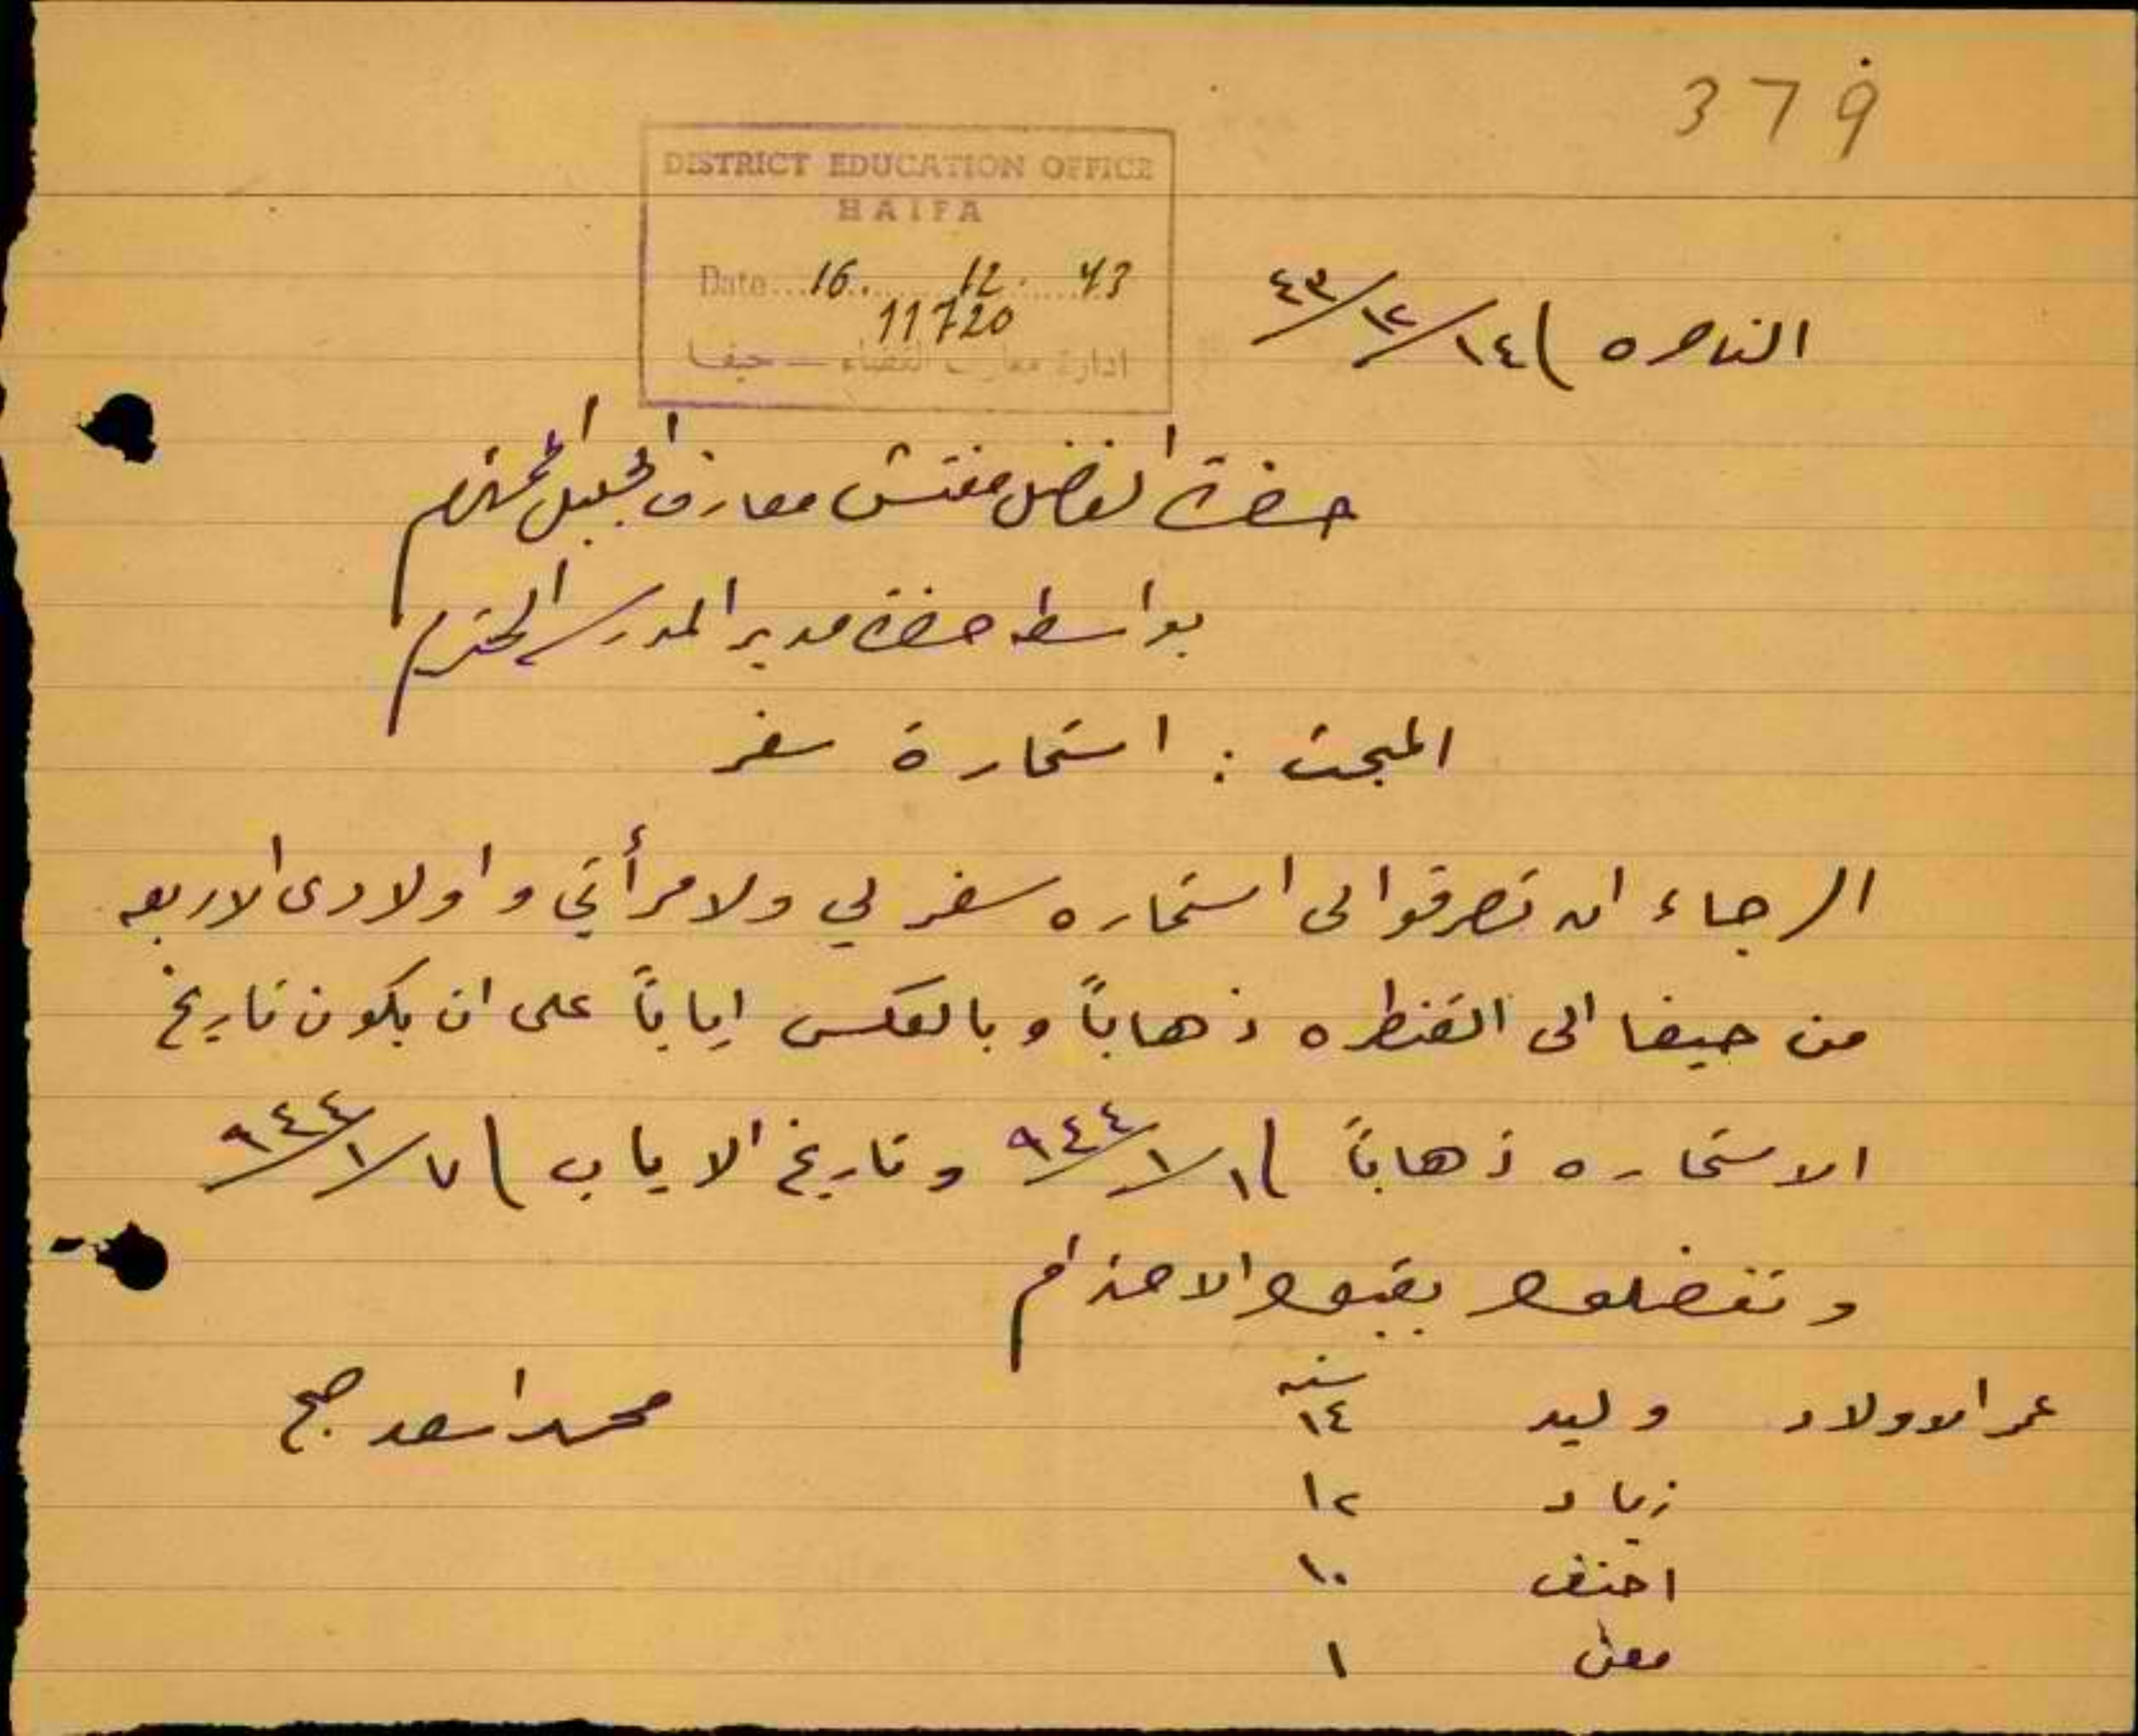 379
DISTRICT EDUCATION OFFICE
HAIFA
Date...16......12......43
11720
ادارة معارف القضاء — حيفا
الناصره ) ١٤/١٢/٤٣
حضرة الفاضل مفتش معارف الجليل المحترم
بواسطة حضرة مدير المدرسه المحترم
المبحث : استمارة سفر
الرجاء ان تصرفوا لي استماره سفر لي ولامرأتي واولادي الاربعه
من حيفا الى القنطره ذهاباً وبالعكس اياباً على ان يكون تاريخ
الاستماره ذهاباً ) ١/١/٩٤٤ وتاريخ الاياب ) ٧/١/٩٤٤
وتفضلوا بقبول الاحترام
عمر الاولاد وليد ١٤ سنه
محمد اسعد صح
زياد ١٢
احنف ١٠
معن ١